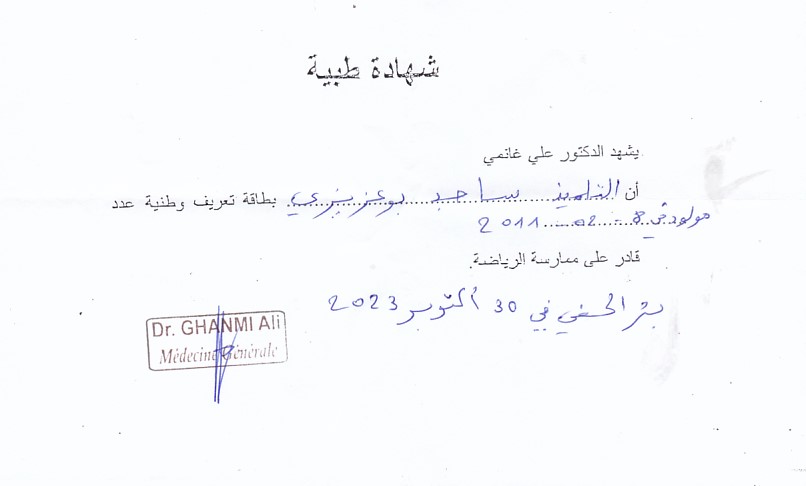 شهادة طبية
يشهد الدكتور علي غانمي
أن التلميذ ساجد بوعزيزي بطاقة تعريف وطنية عدد
مولود في 8 - 02 - 2011
قادر على ممارسة الرياضة.
بئر الحفي في 30 أكتوبر 2023
Dr. GHANMI Ali
Médecine Générale